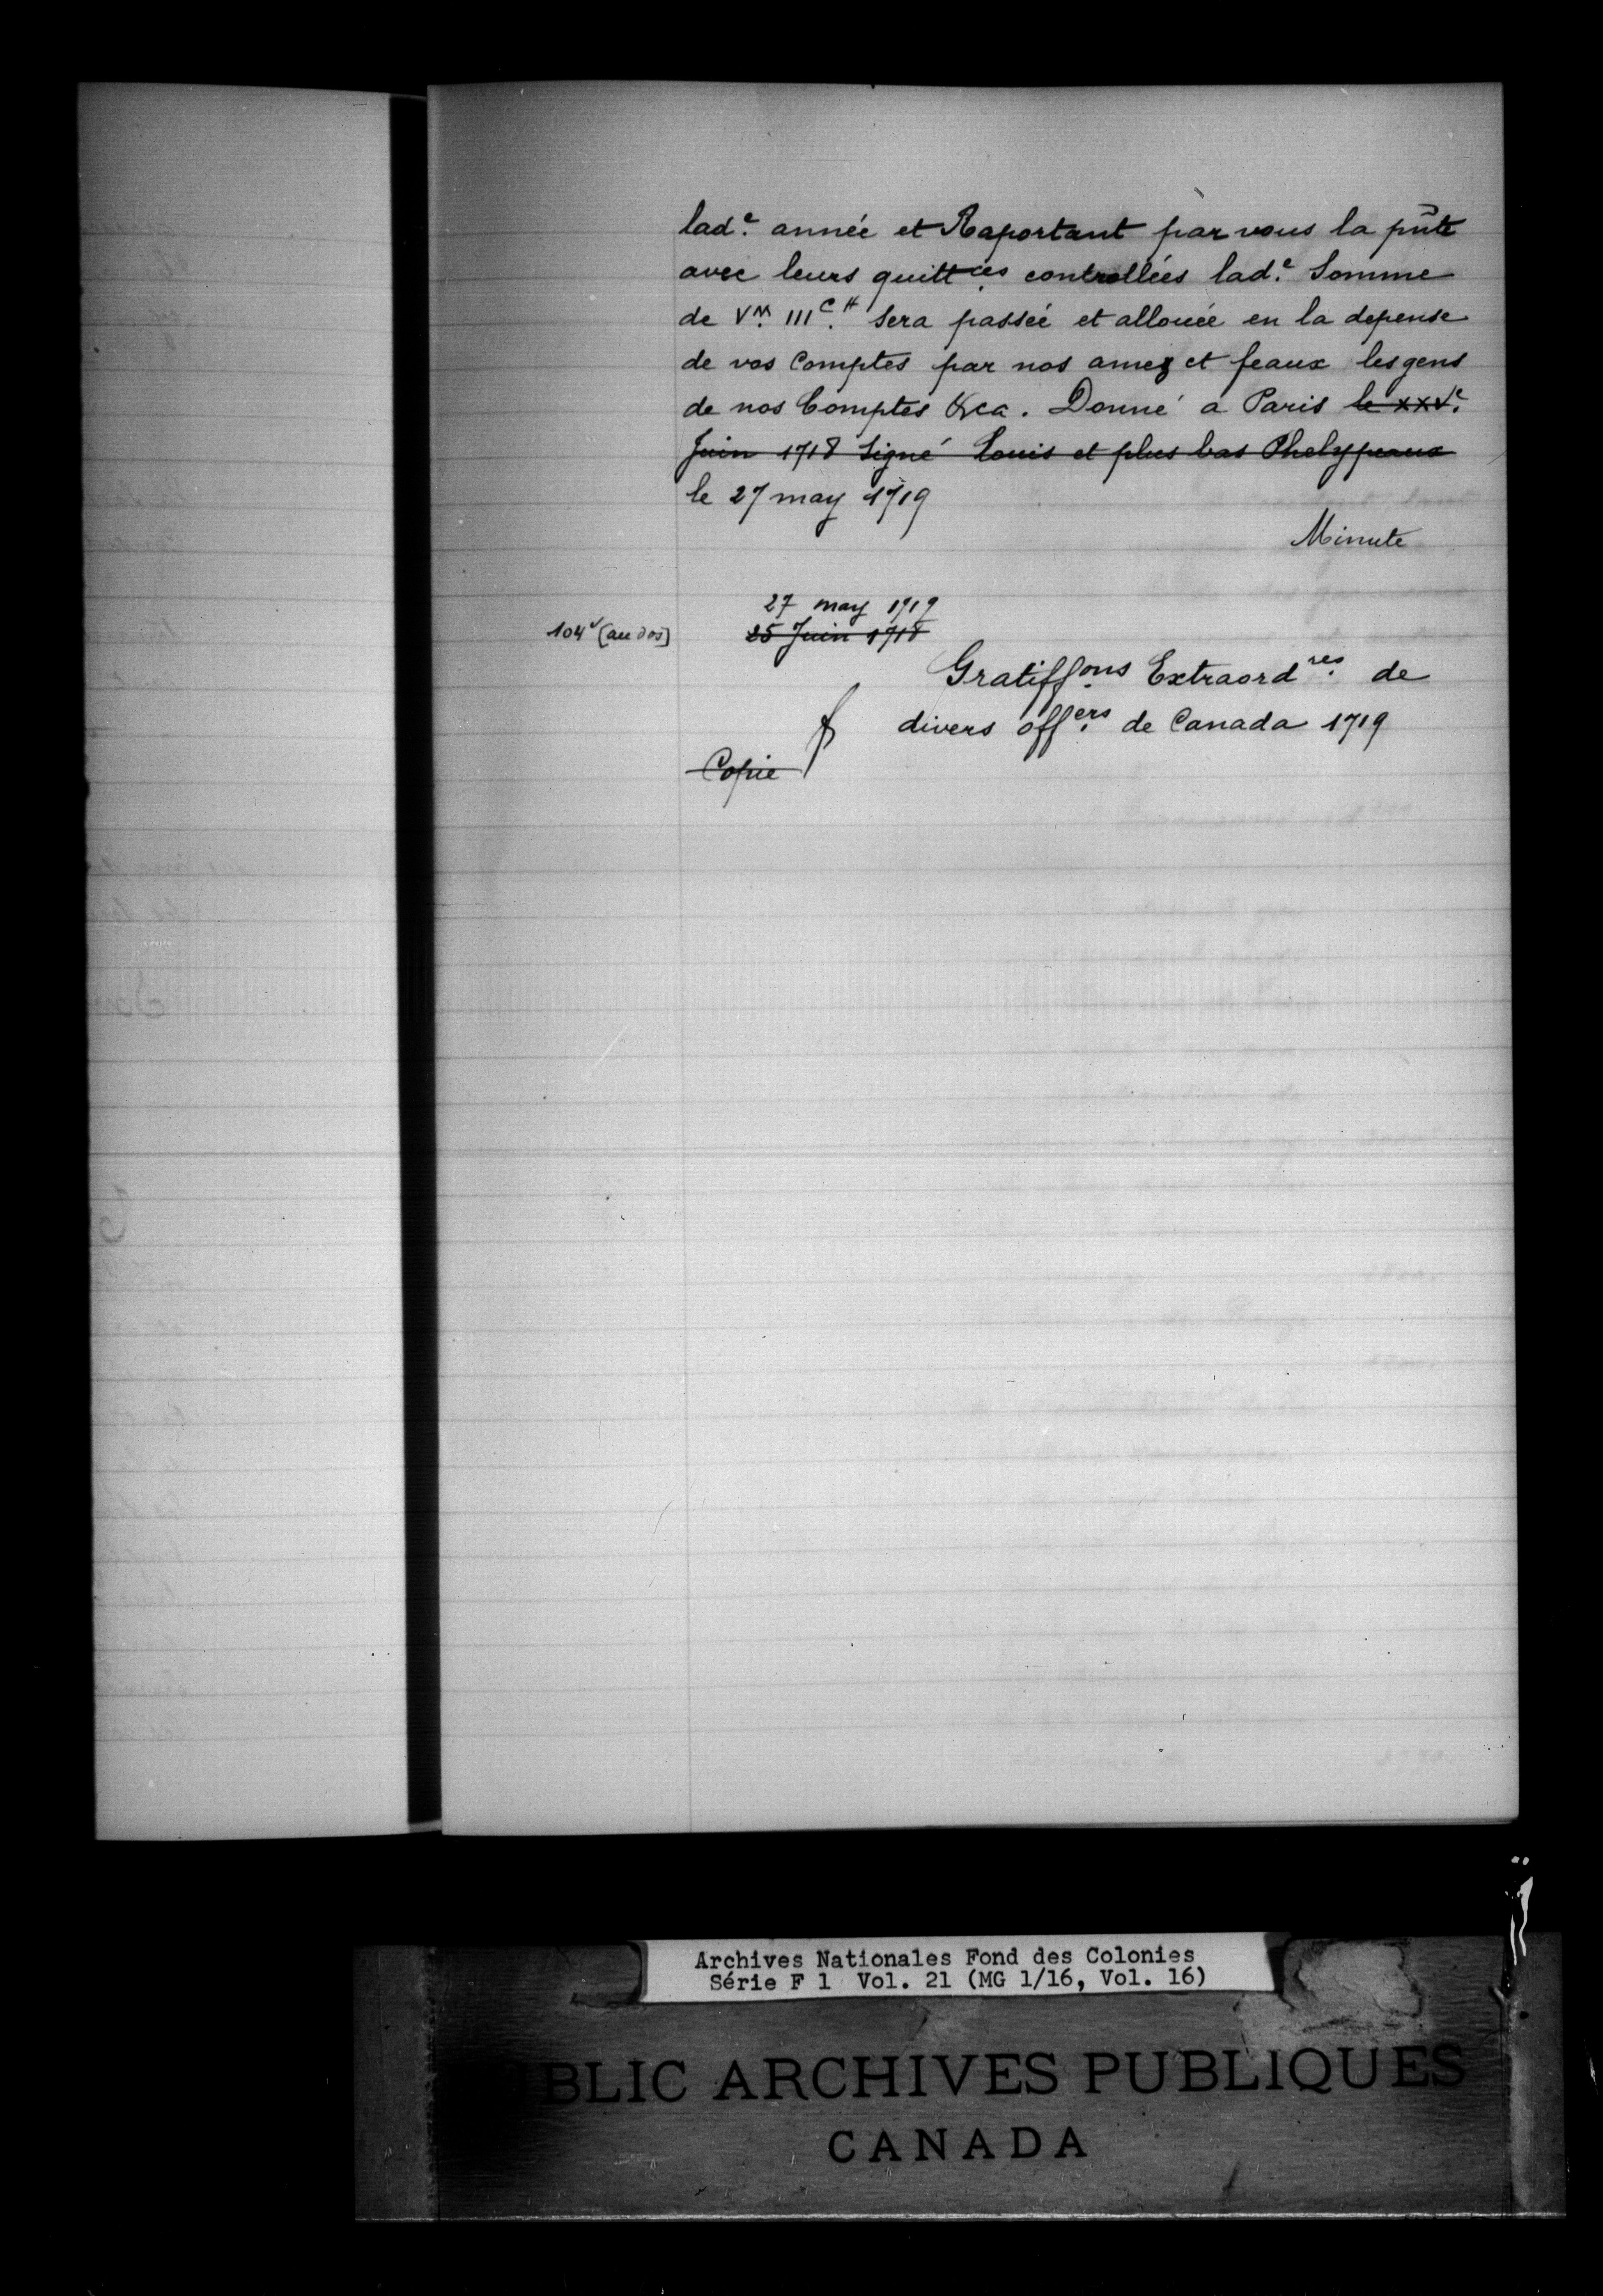 lad.e année et Raportant par vous la pñte
avec leurs quitt.ces controllées lad.e Somme
de V.M III.C ₶ Sera passée et allouée en la depense
de vos Comptes par nos amez et feaux les gens
de nos Comptes &ca. Donné a Paris ~~le XXV.e~~
~~Juin 1718 Signé Louis et plus bas Phelypeaux~~
le 27 may 1719
Minute
27 may 1719
104v [au dos] ~~25 Juin 1718~~
Gratiff.ons Extraord.res de
divers off.ers de Canada 1719
~~Copie~~
Archives Nationales Fond des Colonies
Série F 1 Vol. 21 (MG 1/16, Vol. 16)
BLIC ARCHIVES PUBLIQUES
CANADA